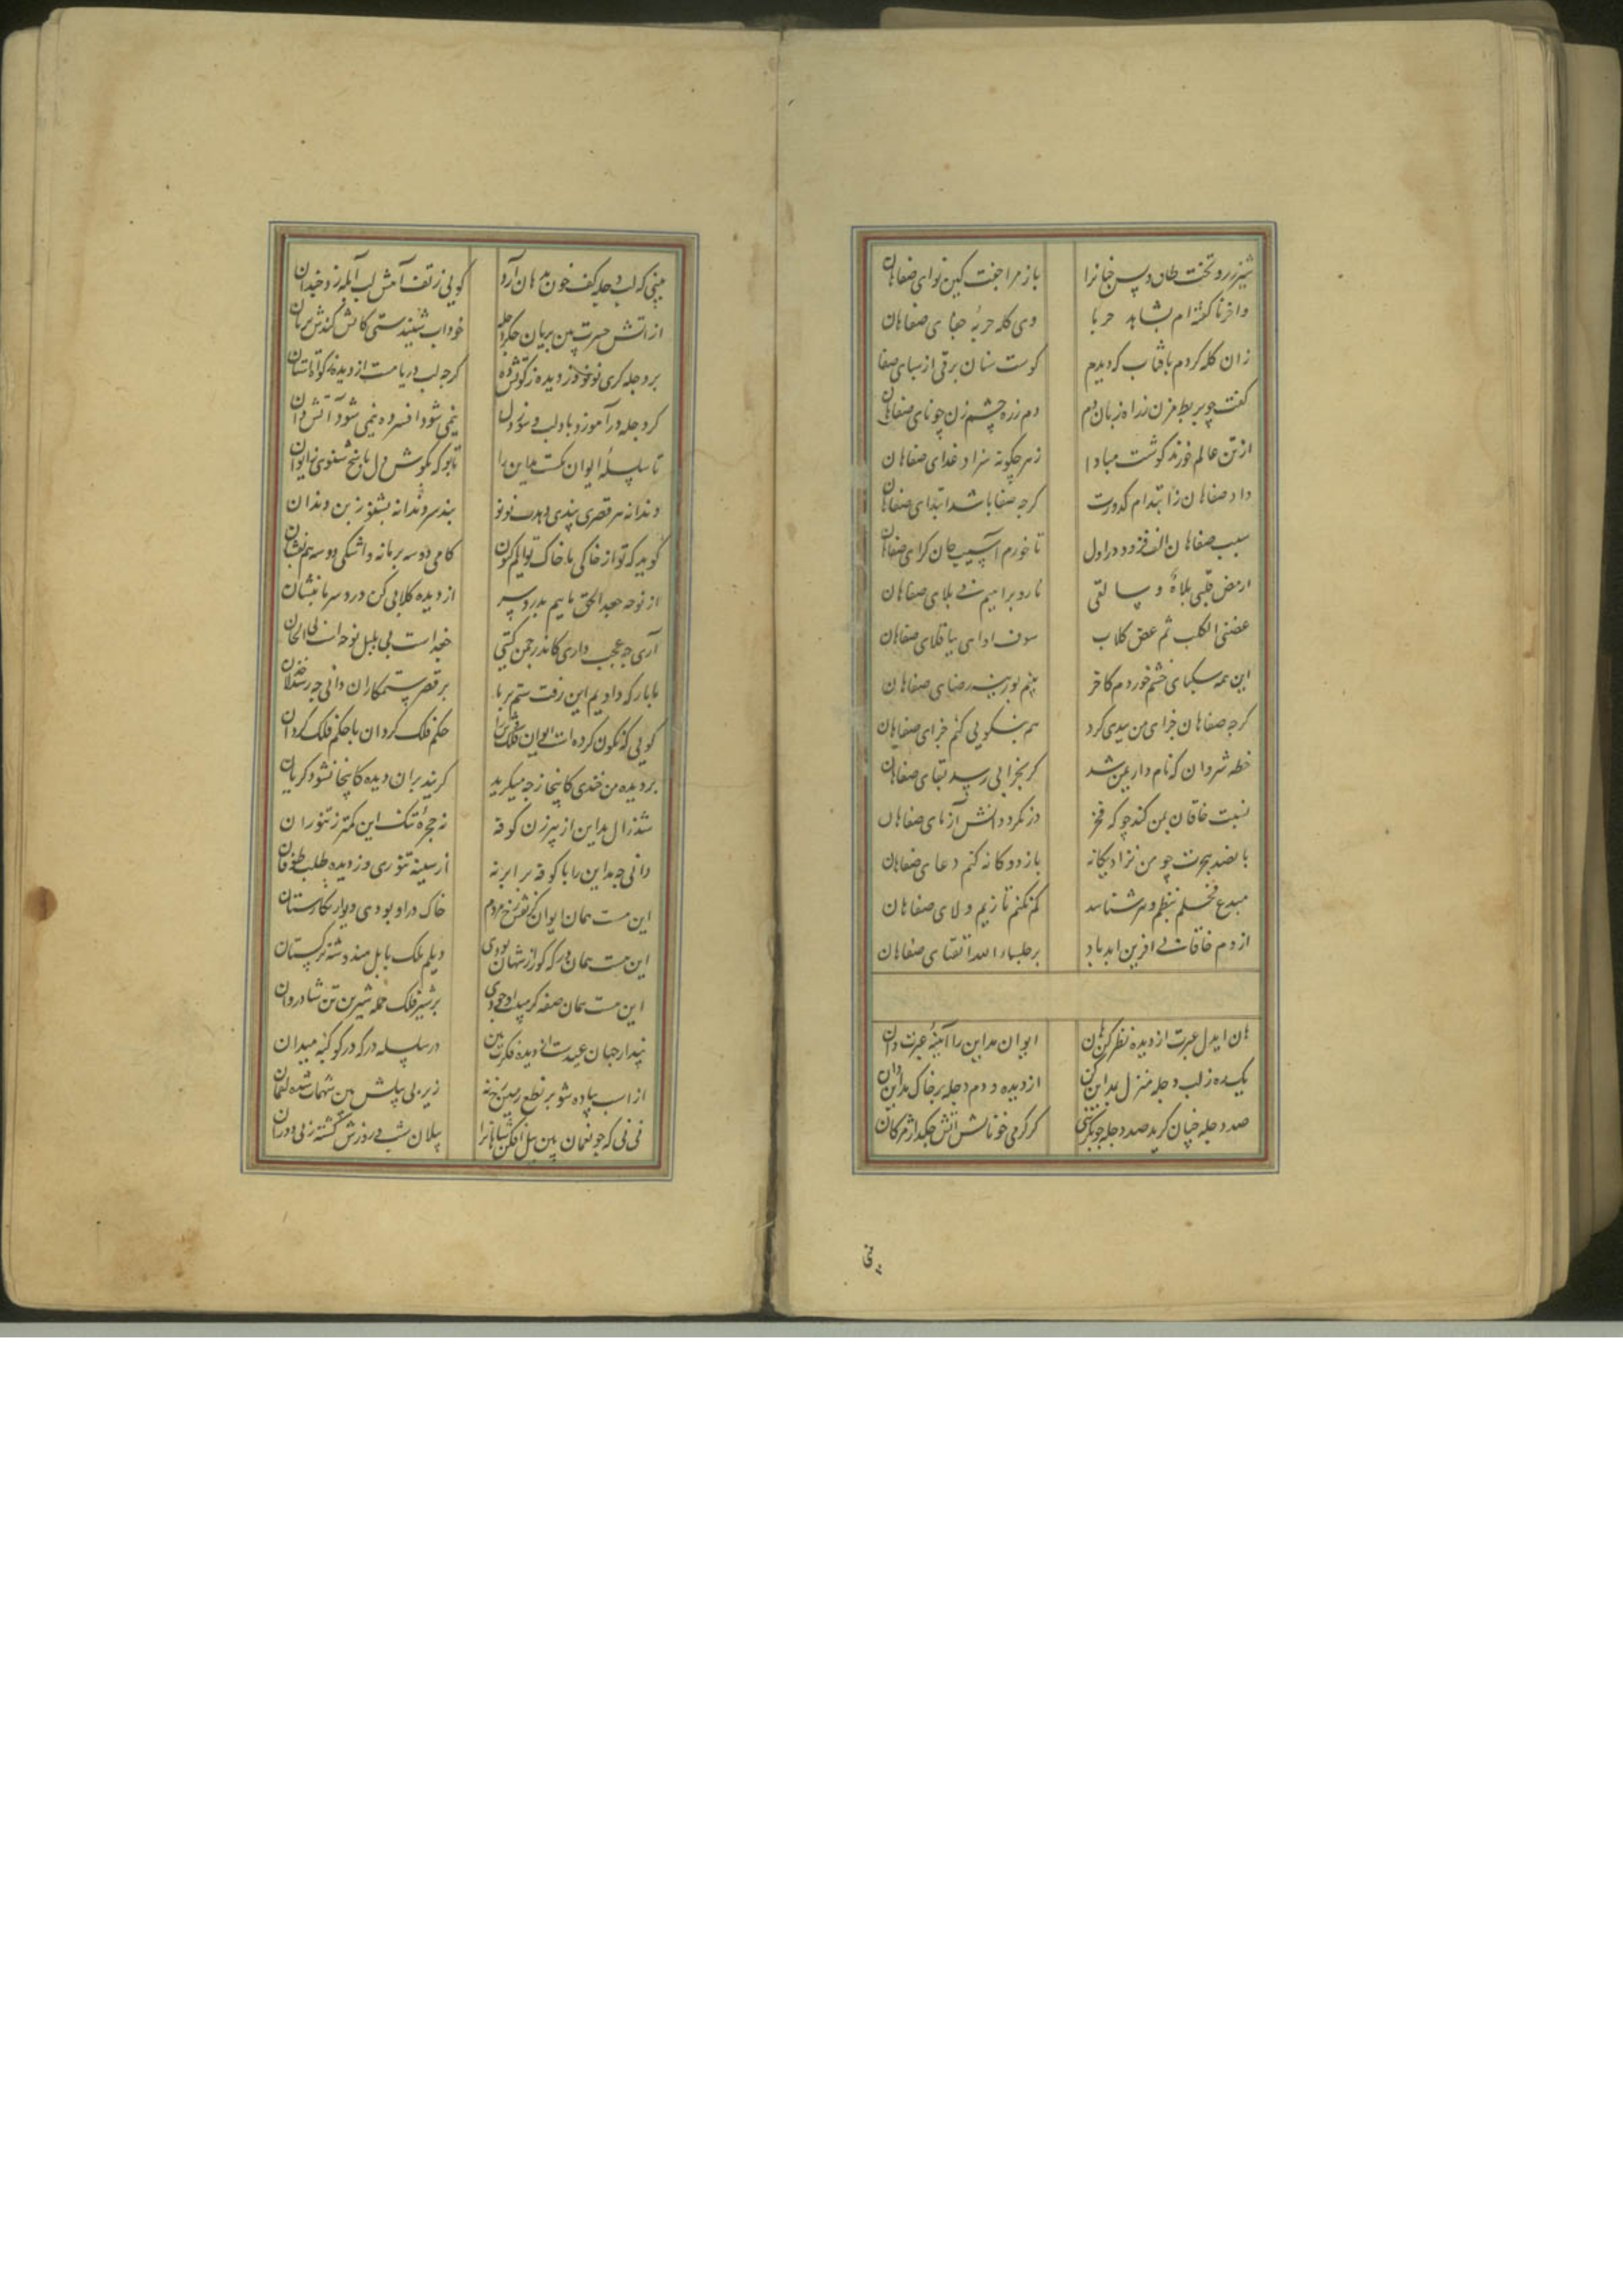 باز مرا جفت کین نوای صفاهان
وی کله حربهٔ جفای صفاهان
زان کله کردم بافتاب که دیدم کوست سنان برقی از سبای صفا
کفت چو بربط مزن زراه زبان دم دم زره چشم زن چو نای صفاهان
ازتن عالم خورند کوشت مبادا زهر چکونه سزاد غدای صفاهان
داد صفاهان زابتدام کدورت کرچه صفا باشد ابتدای صفاهان
سیب صفاهان الف فزود در اول تا خورم آسیب جان کزای صفاهان
عضنی الکلب ثم عض کلاب
این همه سکبای خشم خوردم کاخر بینم لوزینه رضای صفاهان
کرچه صفاهان جزای من ببدی کرد هم بنکویی کنم جزای صفاهان
خطه شروان که نام دار بمن شد کر بخرابی رسد بقای صفاهان
نسبت خاقان بمن کند چو که فخر در نکرد دانش آزمای صفاهان
با بضد هجرت چو من نزاد یکانه باز دوکانه کنم دعای صفاهان
مبدع فحلم بنظم و نثر شناسد کم نکنم تا زیم ولای صفاهان
از دم خاقانی افرین ابد باد بر جلساء الله اتقیای صفاهان
هان ایدل عبرت از دیده نظر کن هان ایوان مداین را آیینهٔ عبرت دان
یک ره زلب دجله منزل بمداین کن از دیده دوم دجله بر خاک مداین ران
صد دجله خون کویی کر کرمی خونابش اتش چکد از مژکان
نی
بینی که لب دجله کف خون بدهان آرد کویی زتف آهش لب آبله زد چندان
از اتش حسرت بین بریان جکر دجله خود اب شنیدستی کاتش کندش بریان
بر دجله کری نو نو وز دیده زکوتش ده کرچه لب دریاست از دجله زکوة استان
کر دجله درآموزد باد لب و سوز دل نیمی شود افسرده نیمی شود آتش دان
تا سلسلهٔ ایوان بکسست مداین را
تا بو که بکوش دل پاسخ شنوی زایوان
دندانه هر قصری پندی دهدت نو نو پند سر دندانه بشنو زبن دندان
کوید که تو از خاکی ما خاک توایم اکنون کامی دوسه بر ما نه و اشکی دوسه هم بفشان
از نوحه جعد الحق ماییم بدرد سر از دیده کلابی کن درد سر ما بنشان
آری چه عجب داری کاندر چمن کیتی جغد است پی بلبل نوحه است پی الحان
ما بارکه دادیم این رفت ستم بر ما بر قصر ستمکاران دانی چه رسد خذلان
کویی که نکون کرده است ایوان فلک وش را حکم فلک کردان یا حکم فلک کردان
بر دیده من خندی کاینجا زچه میکرید کریند بران دیده کاینجا نشود کریان
نه زال مداین از پیرزن کوفه نه حجرهٔ تنک این کمتر زتنور ان
دانی چه مداین را با کوفه برابر نه از سینه تنوری وز دیده طلب طوفان
این هست همان ایوان کز نقش رخ مردم خاک در او بودی دیوار نکارستان
این هست همان درکه کورا زشهان بودی دیلم ملک بابل هندو شه ترکستان
این هست همان صفه کز هیبت او بردی بر شیر فلک حمله شیر تن شادروان
پندار همان عهدست از دیده فکرت بین در سلسله درکه در کوکبه میدان
از اسب پیاده شو بر نطع زمین رخ نه زیر پی پیلش بین شهمات شده نعمان
نی نی که چو نعمان بین پیل افکن شاهانرا پیلان شب و روزش کشته زپی دوران